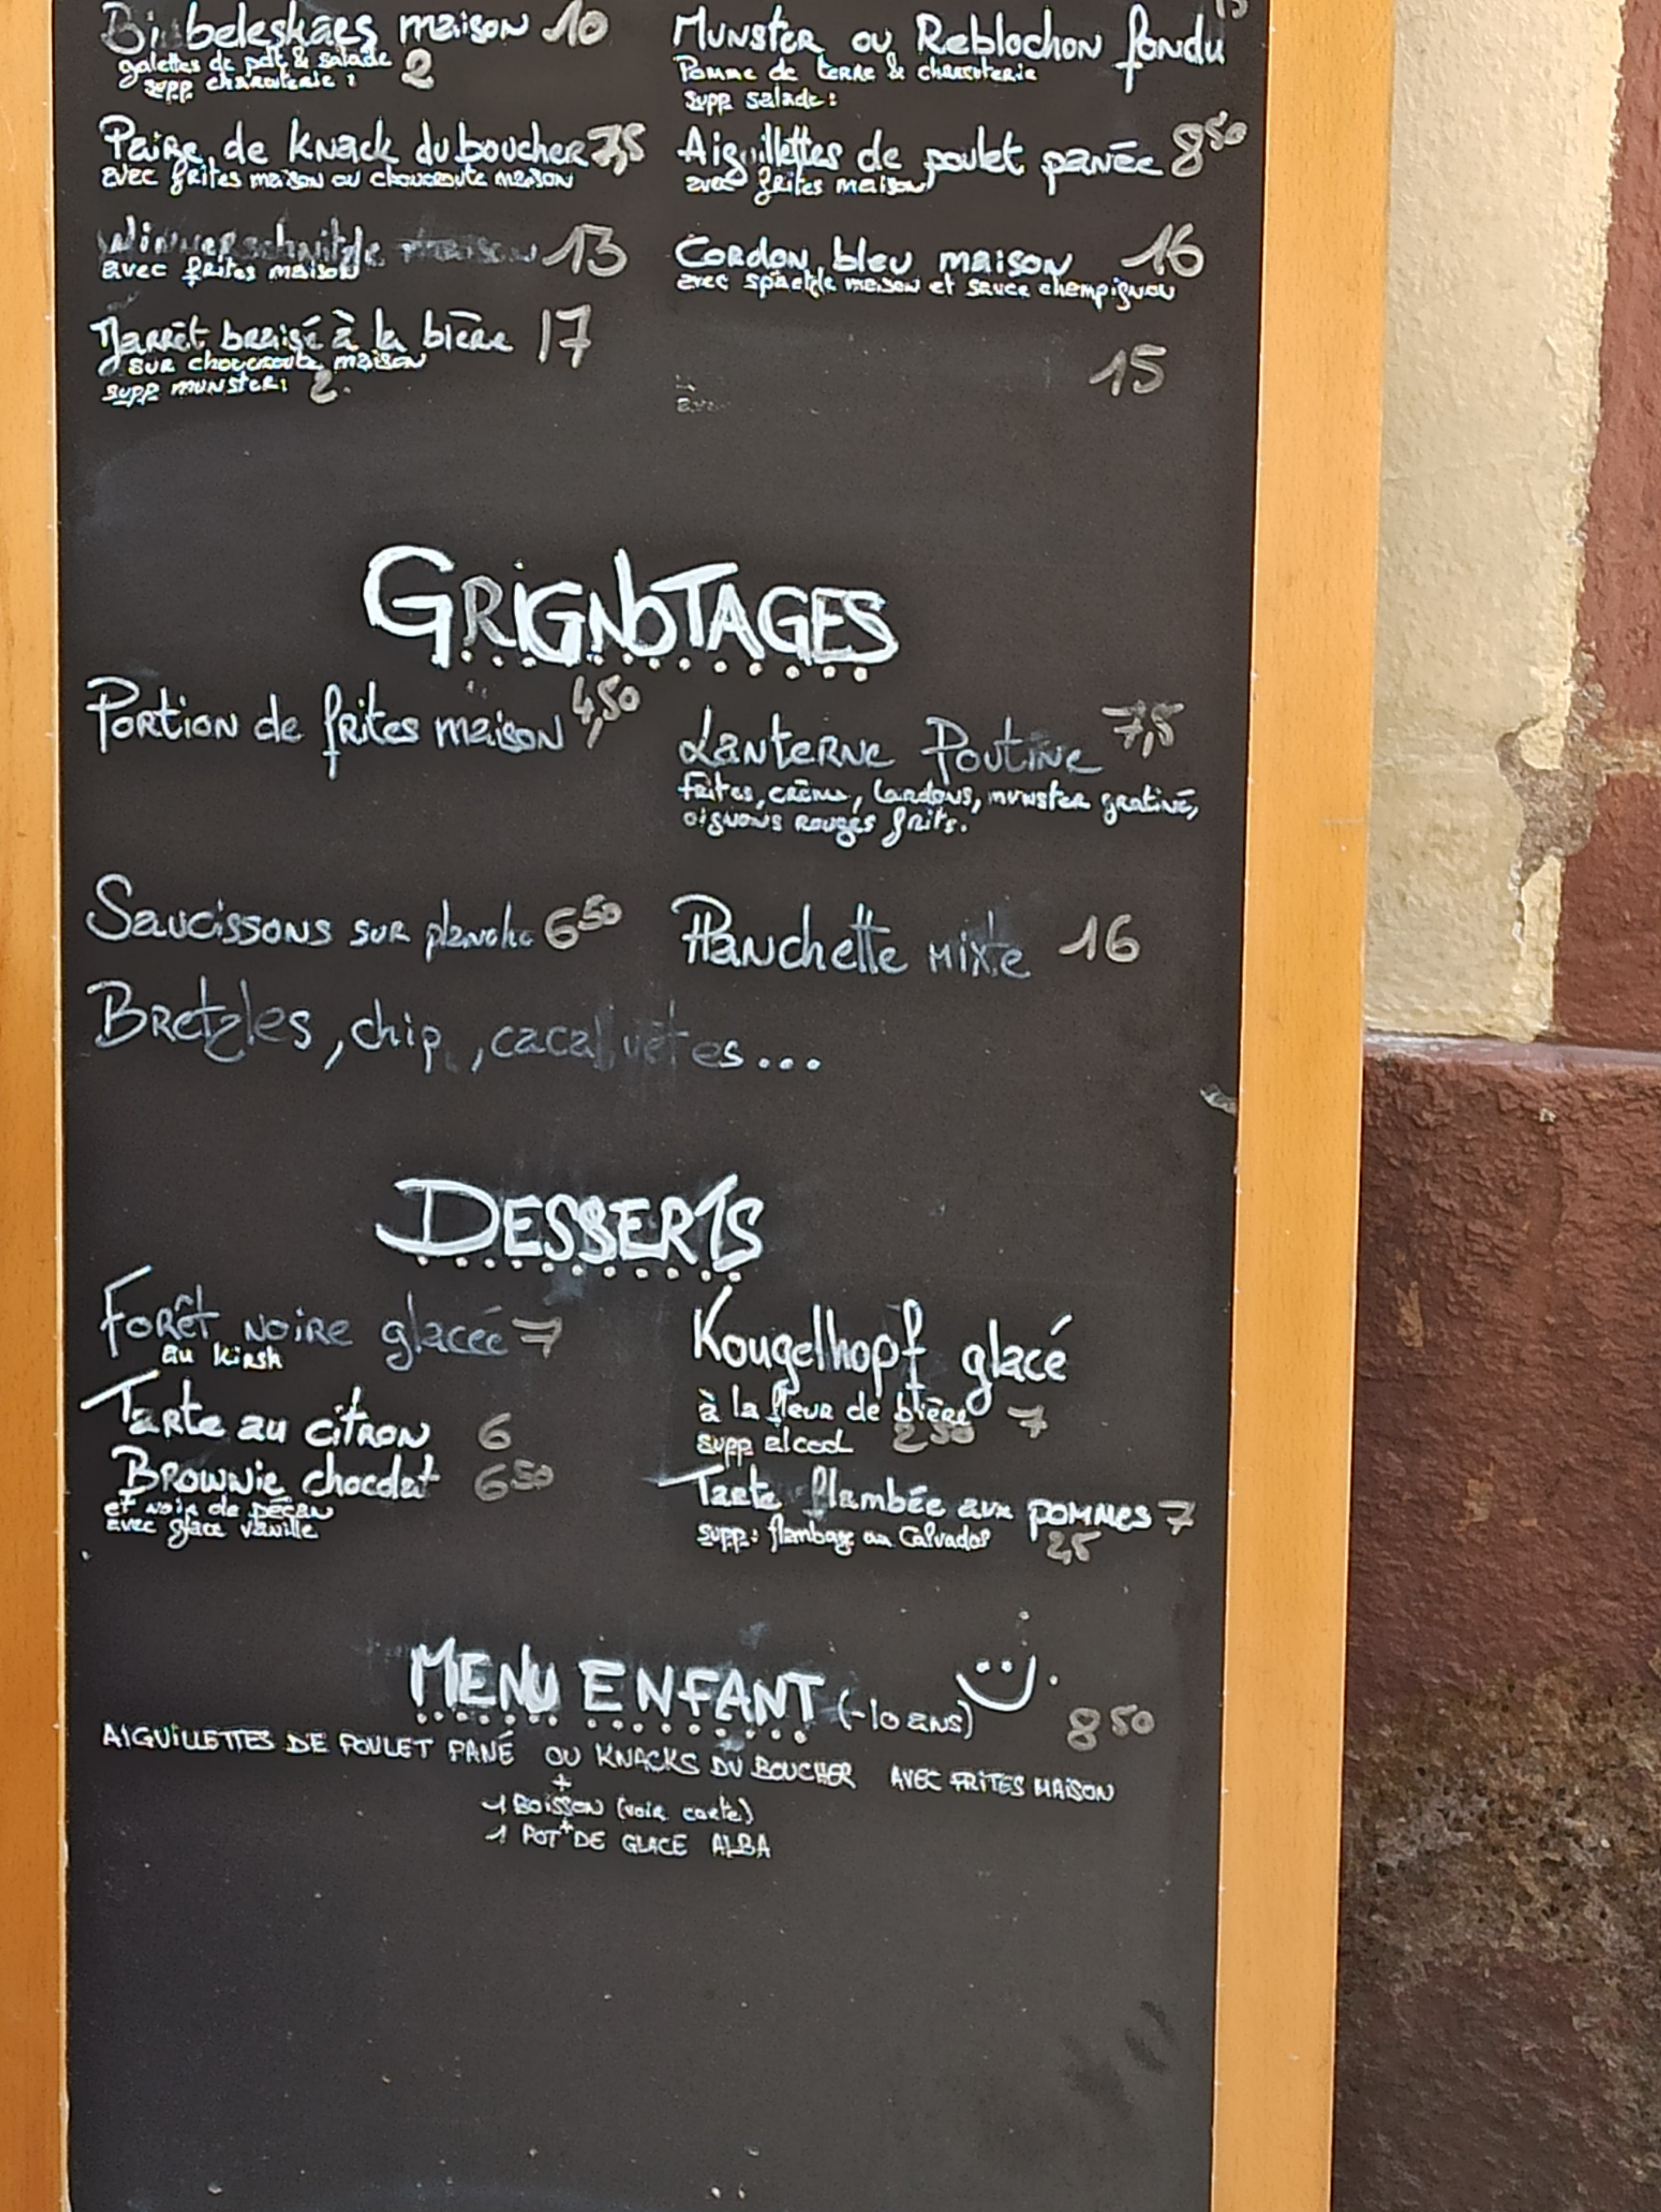 Bibeleskaes maison 10
galettes de pdt & salade
supp charcuterie : 2
Munster ou Reblochon fondu
Pomme de terre & charcuterie
supp salade :
Paire de Knack du boucher 7,5
avec frites maison ou choucroute maison
Aiguillettes de poulet panée 8 50
avec frites maison
13
avec frites maison
Cordon bleu maison 16
avec späetzle maison et sauce champignon
Jarret braisé à la bière 17
sur choucroute maison
supp munster: 2.
15
GRIGNOTAGES
Portion de frites maison 4,50
Lanterne Poutine 7,5
frites, crème, lardons, munster gratiné,
oignons rouges frits.
Saucissons sur planche 6 50
Planchette mixte 16
Bretzles, chip, cacahuètes...
DESSERTS
Forêt noire glacée 7
au kirsh
Kougelhopf glacé
à la fleur de bière 7
supp alcool 2 50
Tarte au citron 6
Brownie chocolat 6 50
et noix de pécan
avec glace vanille
Tarte flambée aux pommes 7
supp: flambage au Calvados 2,5
MENU ENFANT (-10 ans) 8 50
AIGUILLETTES DE POULET PANÉ OU KNACKS DU BOUCHER AVEC FRITES MAISON
+
1 BOISSON (voir carte)
+
1 POT DE GLACE ALBA